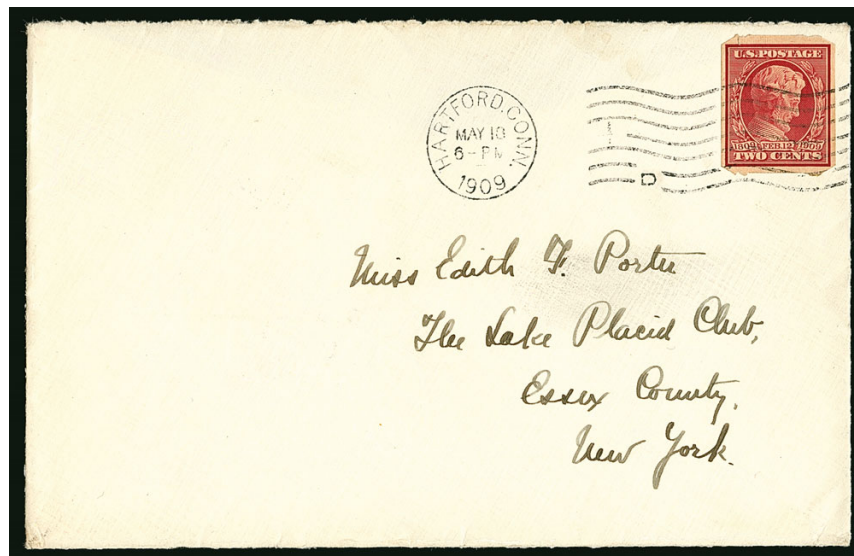 HARTFORD, CONN.
MAY 10
6-PM
1909
D
U.S. POSTAGE
1809 FEB. 12 1909
TWO CENTS
Miss Edith F. Porter
The Lake Placid Club,
Essex County,
New York.